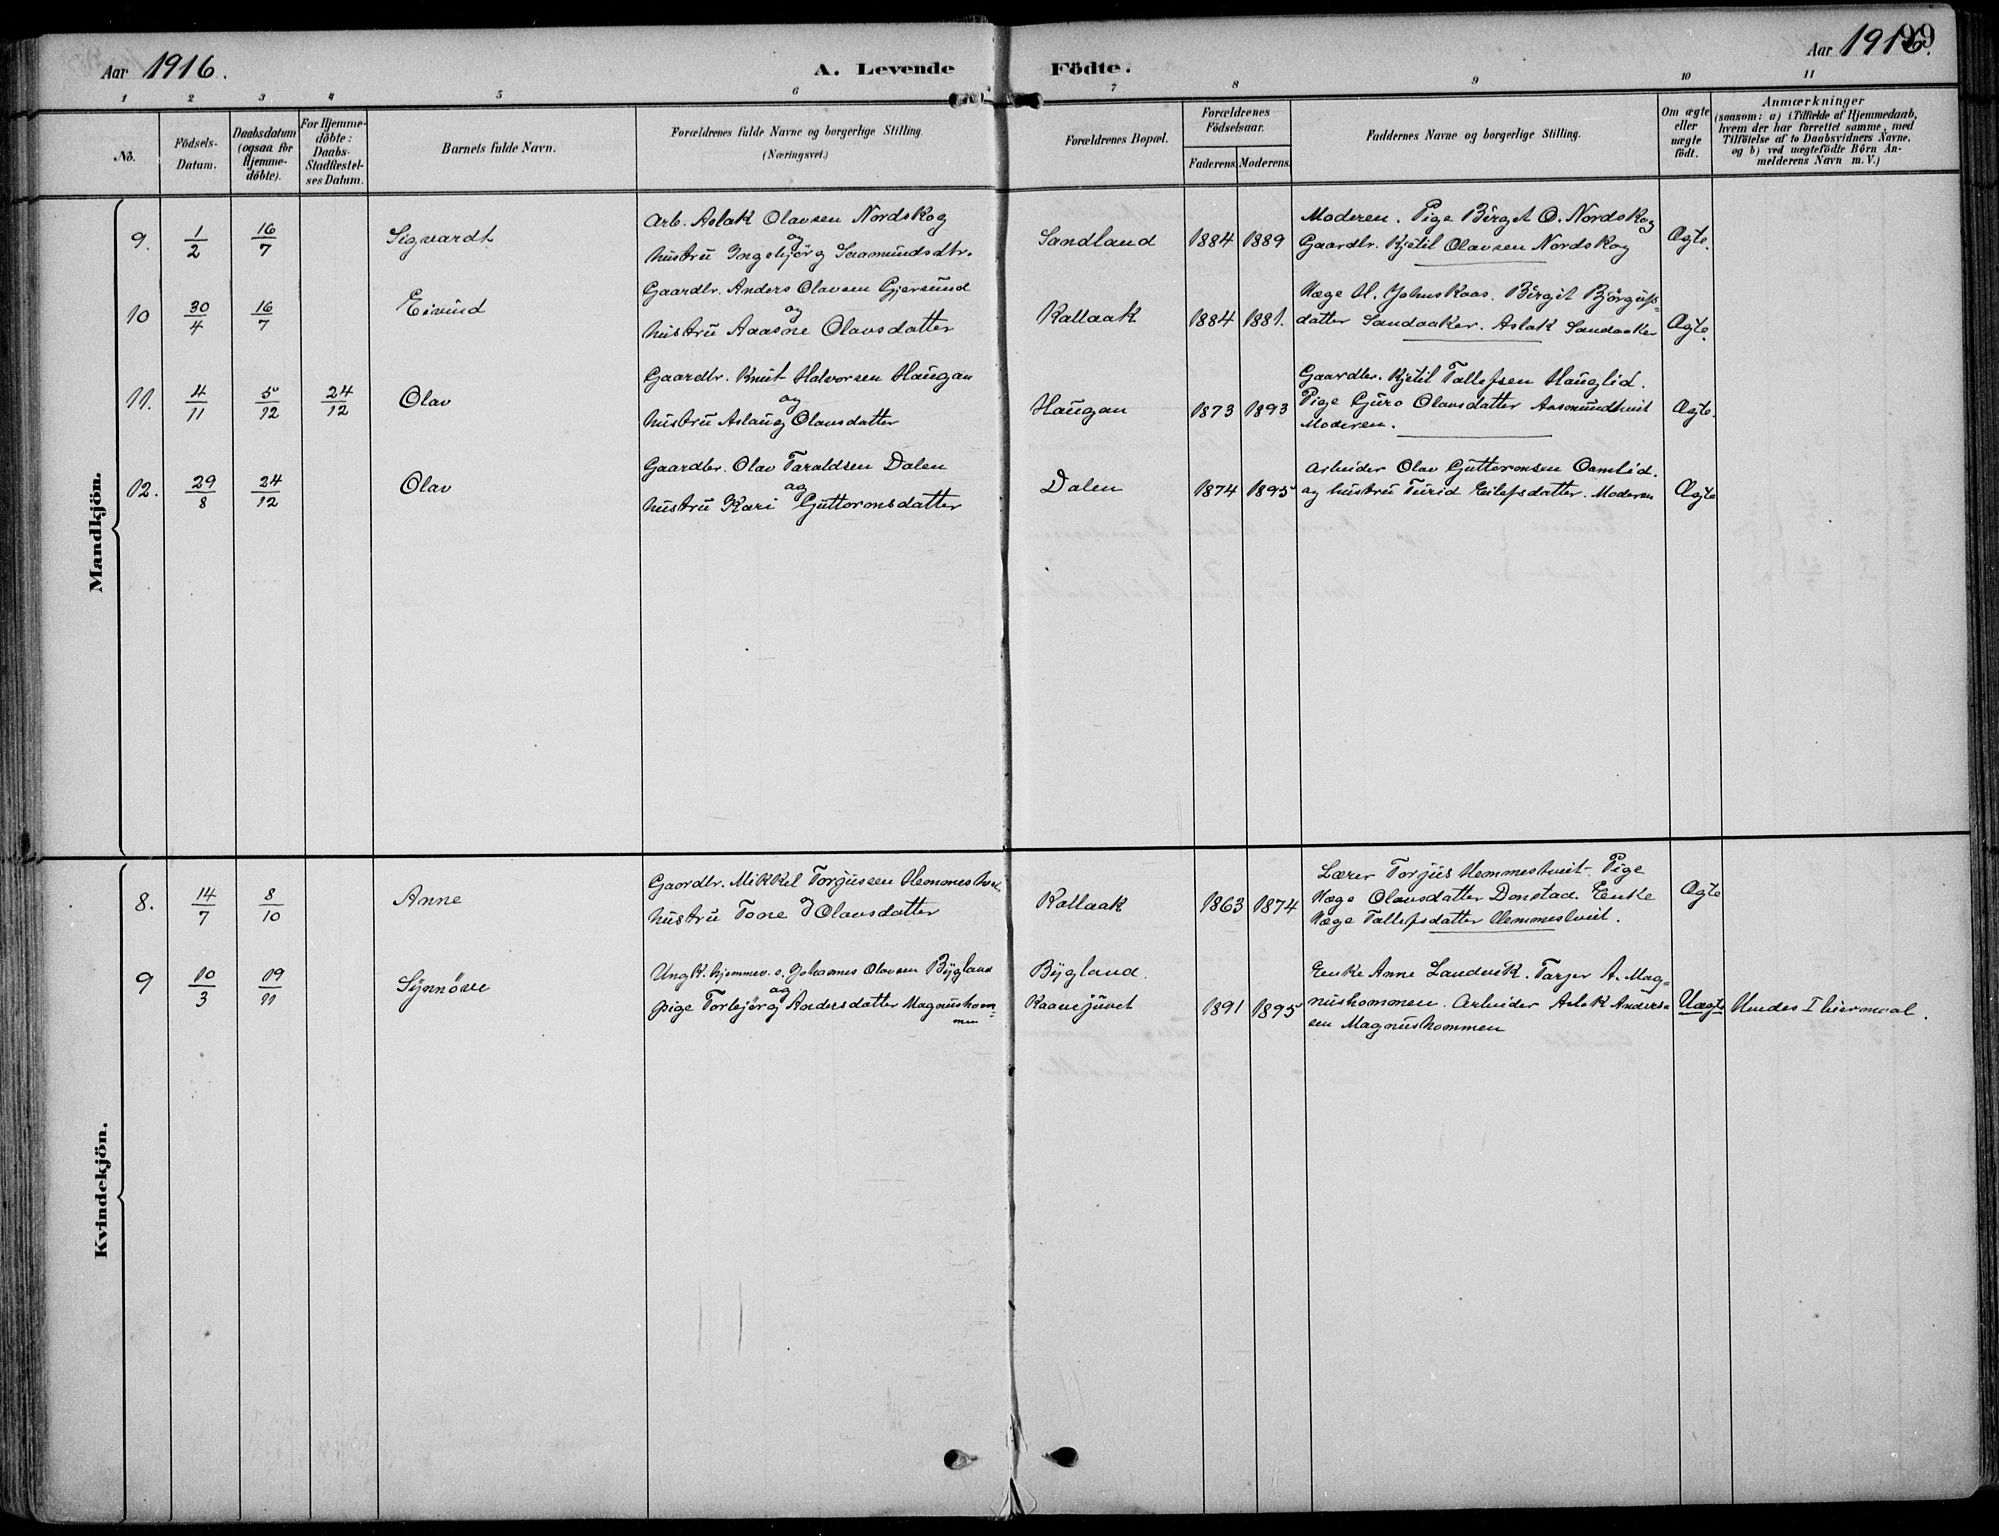 Aar 1916.
A. Levende Födte.
Aar 1916.
99
1 2 3 4 5 6 7 8 9 10 11
No.
Födsels-
Datum.
Daabsdatum
(ogsaa for
Hjemme-
döbte).
For Hjemme-
döbte:
Daabs-
Stadfæstel-
ses Datum.
Barnets fulde Navn.
Forældrenes fulde Navne og borgerlige Stilling.
(Næringsvei.)
Forældrenes Bopæl.
Forældrenes
Födselsaar.
Faderens. Moderens.
Faddernes Navne og borgerlige Stilling.
Om ægte
eller
uægte
födt.
Anmærkninger
(saasom: a) i Tilfælde af Hjemmedaab,
hvem der har forrettet samme, med
Tilföielse af to Daabsvidners Navne,
og b) ved uægtefödte Börn An-
melderens Navn m. V.)
Mandkjön.
9. 1/2 16/7 Sigvardt
Arb. Aslak Olavsen Nordskog
og
hustru Ingebjörg Saamundsdtr.
Sandland 1884 1889
Moderen. Pige Birget O. Nordskog
Gaardbr. Kjetil Olavsen Nordskog
Ægte.
10 30/4 16/7 Eivind
Gaardbr. Anders Olavsen Gjersund
og
hustru Aaasne Olavsdatter
Rallaak 1884 1881.
Hæge H. Johnskaas. Birgit Björgufs-
datter Sandaaker. Aslak Sandaaker
Ægte.
11. 4/11 5/12 24/12 Olav
Gaardbr. Knut Halvorsen Haugan
og
hustru Aslaug Olavsdatter
Haugan 1873 1893
Gaardbr. Kjetil Tallefsen Hauglid.
Pige Guro Olavsdatter Aasmundtveit
Moderen.
Ægte.
12. 29/8 24/12 Olav
Gaardbr. Olav Taraldsen Dalen
og
hustru Kari Guttormsdatter
Dalen 1874 1895
Arbeider Olav Guttormsen Oamlid.
og hustru Turid Eilefsdatter. Moderen
Ægte
Kvindekjön.
8. 14/7 8/10 Anne
Gaardbr. Mikkel Torgussen Hemmestveit
og
hustru Tone Olavsdatter
Rallaak 1863 1874
Lærer Torjus Hemmestveit. Pige
Hæge Olavsdatter Donstad. Enke
Hæge Tallefsdatter Hemmestveit.
Ægte
9 10/3 19/11 Synnöve
Ungk. hjemmev. s. Johannes Olavsen Bygland
og
pige Torbjörg Andersdatter Magnushom-
men
Bygland.
Raamjuvet 1891 1895
Enke Anne Landvik. Tarjer A. Mag-
nushommen. Arbeider Aslak Anders-
sen Magnushommen
Uægte
Hendes I leiermaal.